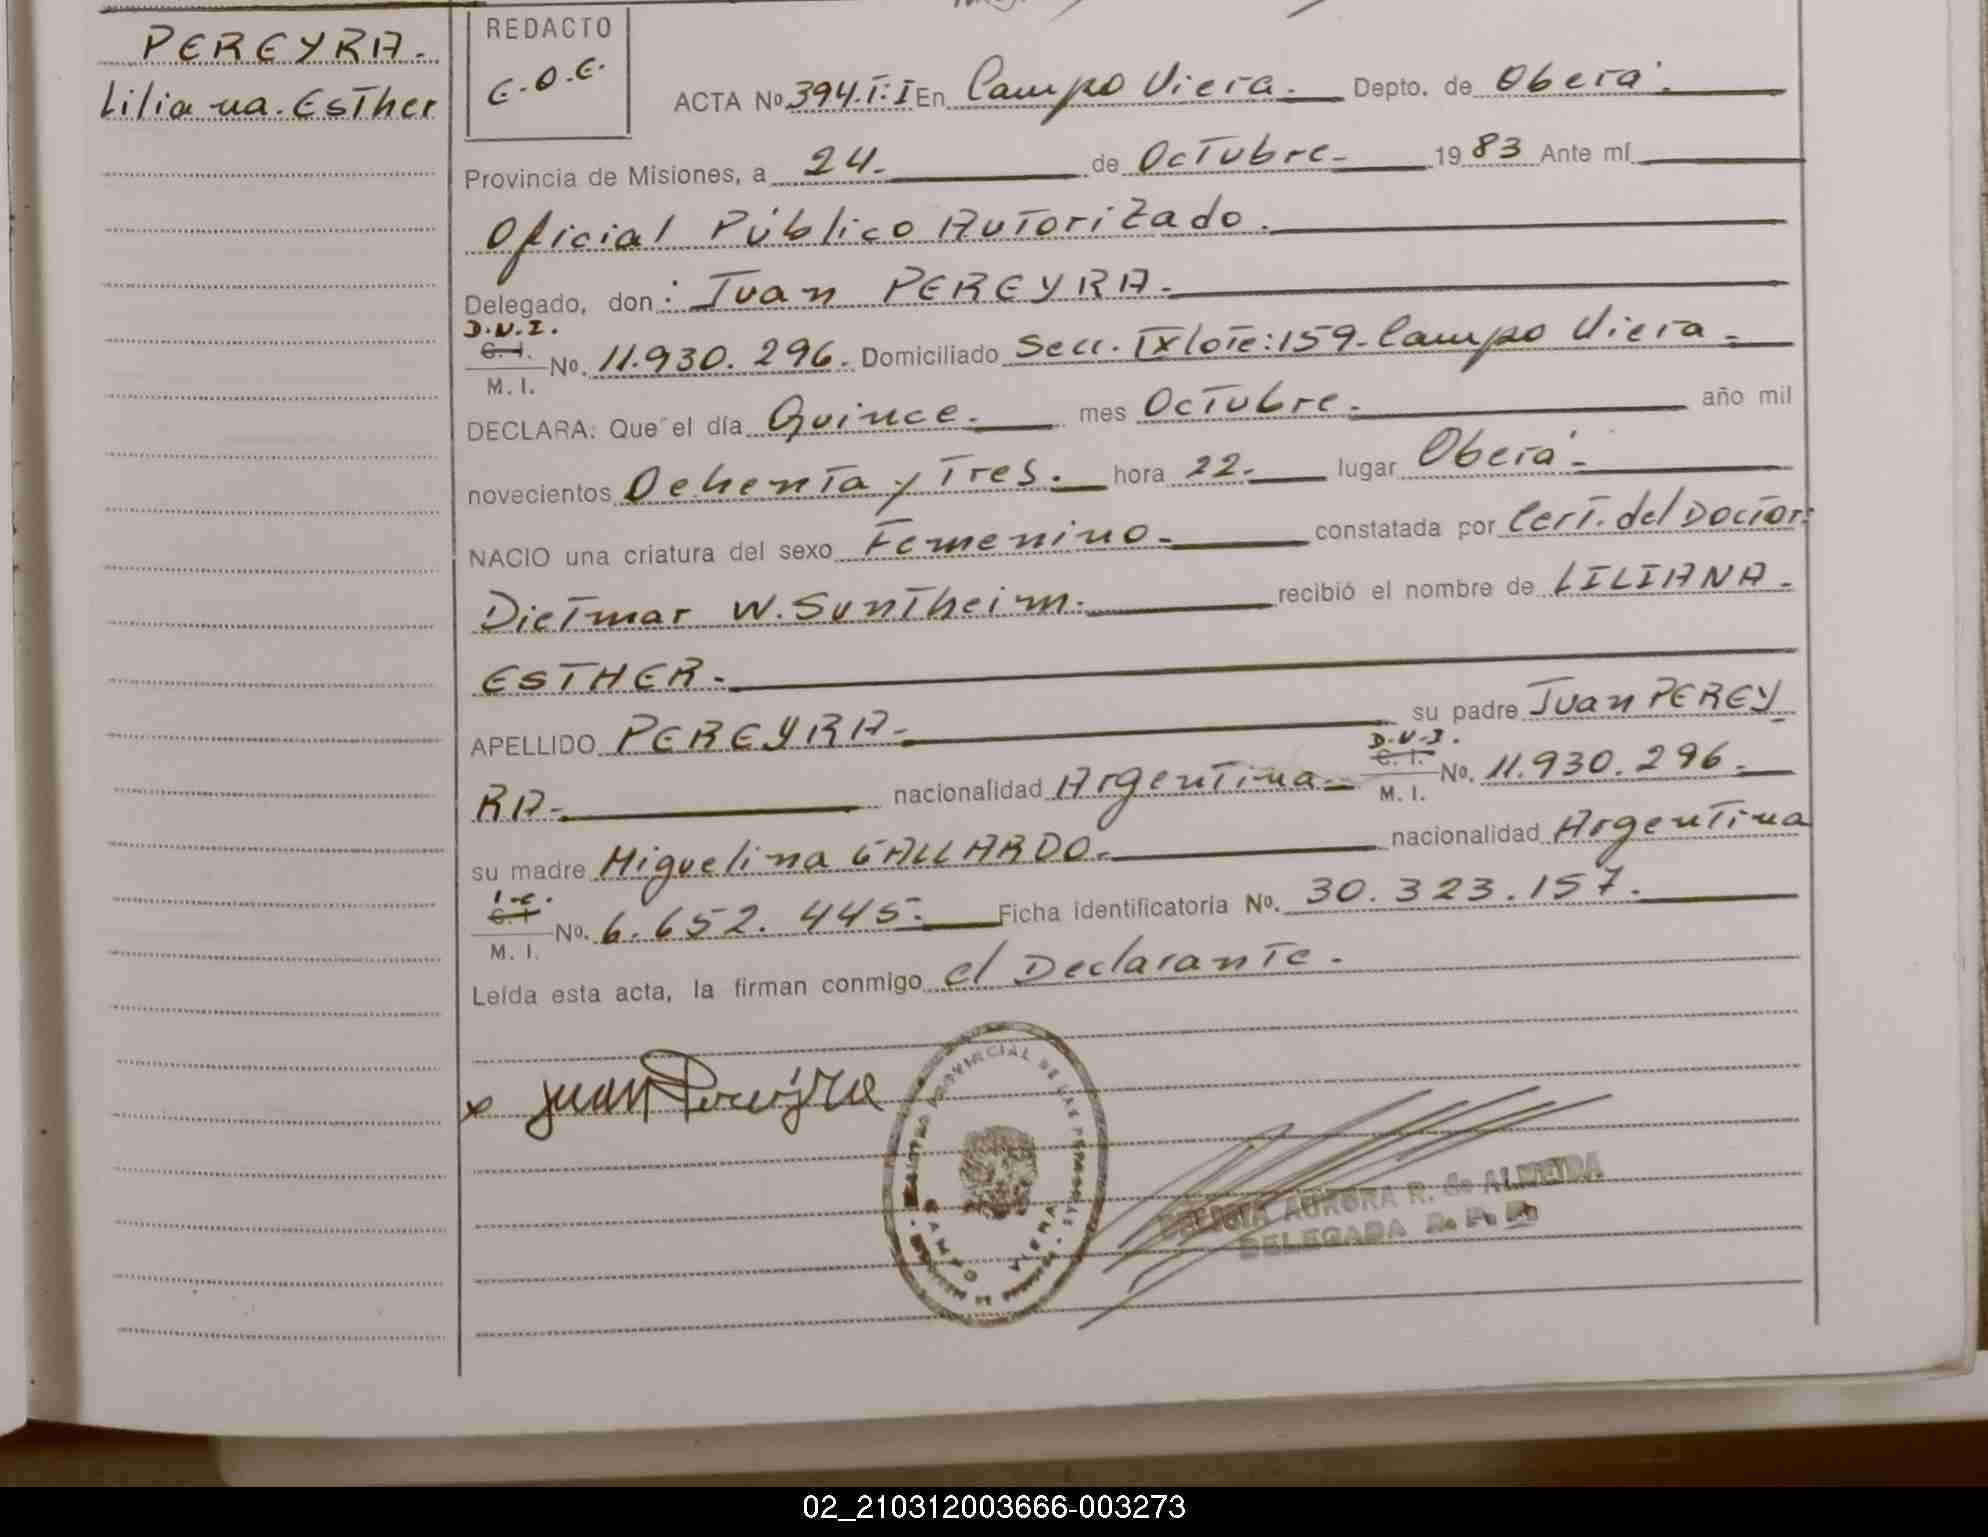 PEREYRA.
Liliana. Esther
REDACTO
E.O.E.
ACTA No 394.T:I En Campo Viera. Depto. de Oberá.
Provincia de Misiones, a 24. de Octubre. 19 83 Ante mí
Oficial Público Autorizado.
Delegado, don: Juan PEREYRA.
D.N.I.
C.I.
M. I. No. 11.930.296. Domiciliado Secc. IX lote:159. Campo Viera
DECLARA: Que el día Quince. mes Octubre. año mil
novecientos Ochenta y Tres. hora 22. lugar Oberá.
NACIO una criatura del sexo Femenino. constatada por Cert. del Doctor:
Dietmar W. Suntheim. recibió el nombre de LILIANA.
ESTHER.
APELLIDO PEREYRA. su padre Juan PEREY
RA. nacionalidad Argentina. D.N.I. C. I. M. I. No. 11.930.296.
su madre Miguelina GALLARDO. nacionalidad Argentina
C.I
M. I. No. 6.652.445. Ficha identificatoria No. 30.323.157.
Leída esta acta, la firman conmigo el Declarante.
x Juan Pereyra
PROVINCIAL DE LAS PERSONAS
CAMPO VIERA
AURORA R. de ALMEIDA
DELEGADA
02_210312003666-003273